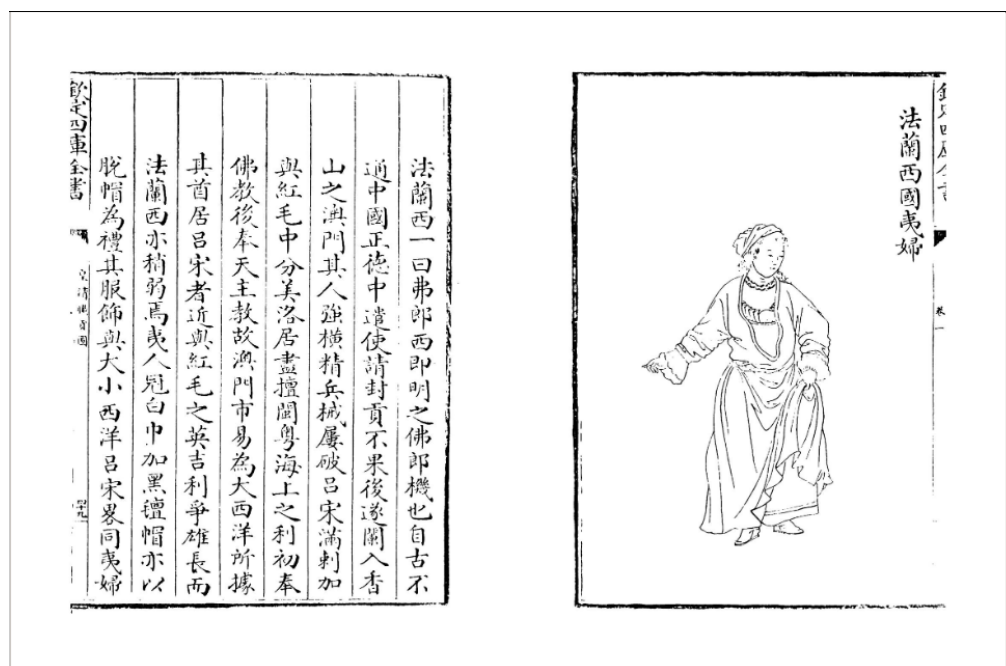 欽定四庫全書
卷一
法蘭西國夷婦
法蘭西一曰弗郎西即明之佛郎機也自古不
通中國正德中遣使請封貢不果後遂闌入香
山之澳門其人強橫精兵械屢破呂宋滿剌加
與紅毛中分美洛居盡擅閩粤海上之利初奉
佛教後奉天主教故澳門市易為大西洋所據
其酋居呂宋者近與紅毛之英吉利爭雄長而
法蘭西亦稍弱焉夷人冠白巾加黑氊帽亦以
脫帽為禮其服飾與大小西洋呂宋畧同夷婦
欽定四庫全書
皇清職貢圖
四十九